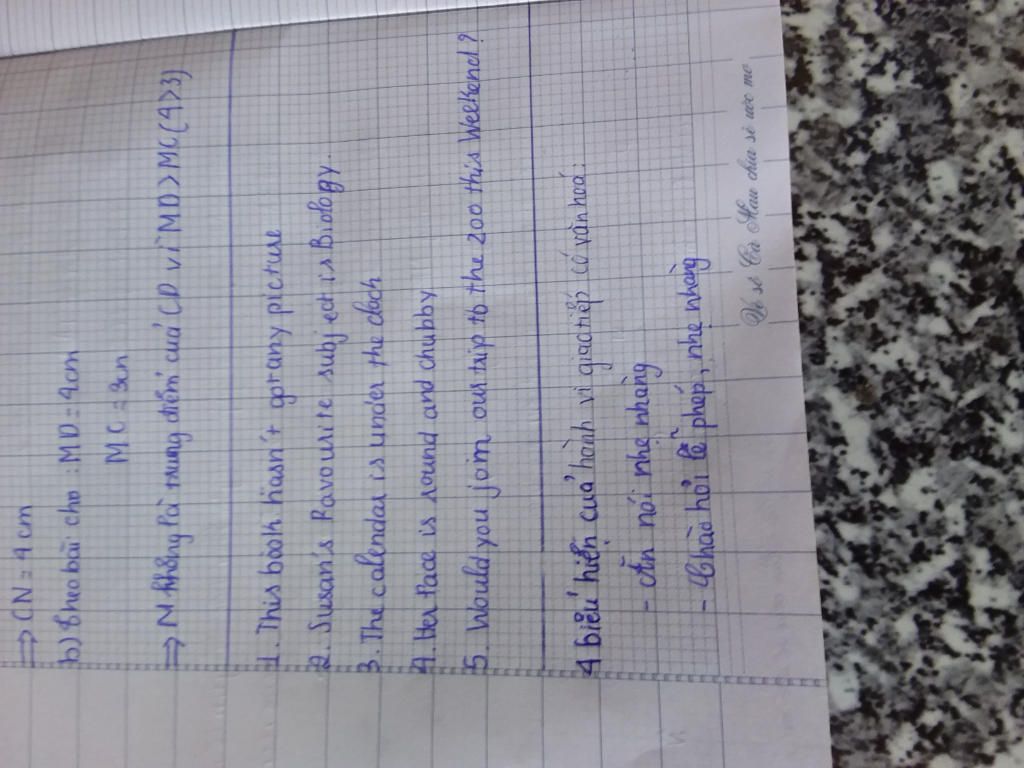 => CN = 4cm
b) Theo bài cho : MD = 4cm
MC = 3cm
=> N không là trung điểm của CD vì MD > MC (4>3)
1. This book hasn't got any picture
2. Susan's Favourite subject is Biology.
3. The calendar is under the clock
4. Her face is round and chubby
5. Would you join our trip to the zoo this Weekend?
4 biểu hiện của hành vi giao tiếp có văn hoá:
- Ăn nói nhẹ nhàng
- Chào hỏi lễ phép, nhẹ nhàng
Vở sẽ Cà Mau chia sẻ ước mơ